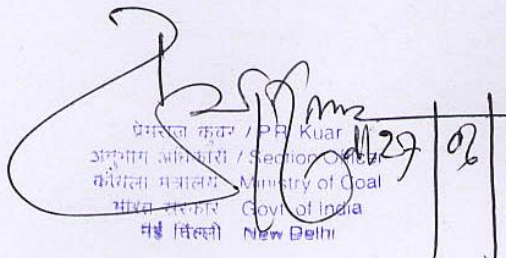 प्रेमराज कुवर / P.R. Kuar
अनुभाग अधिकारी / Section Officer
कोयला मंत्रालय Ministry of Coal
भारत सरकार Govt. of India
नई दिल्ली New Delhi